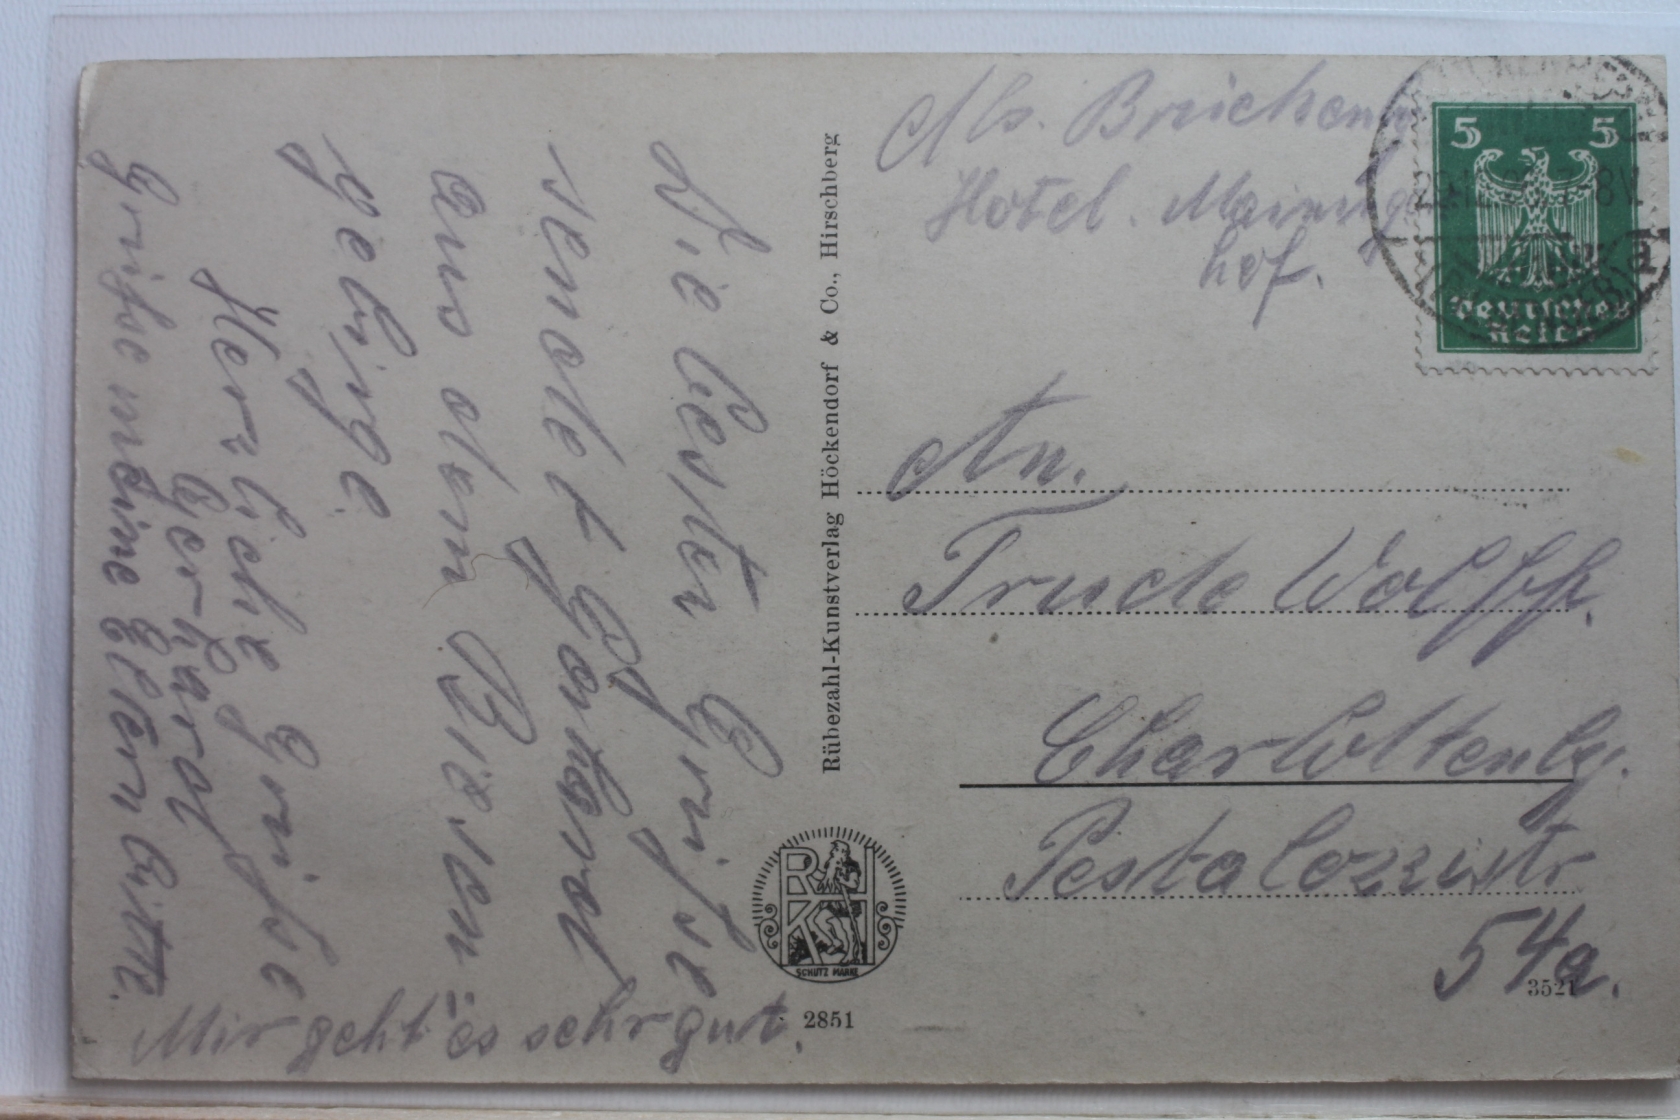 Die besten Grüße
sendet Gerhard
aus dem Riesen=
gebirge
Herzliche Grüße
Gerhard
Grüße meine Eltern bitte.
Mir geht es sehr gut.
Rübezahl-Kunstverlag Höckendorf & Co., Hirschberg
RKH
SCHUTZ MARKE
2851
Abs.
Hotel
hof.
5 5
Deutsches
Reich
An.
Trude Wolff.
Charlottenbg.
Pestalozzistr
54a.
3521